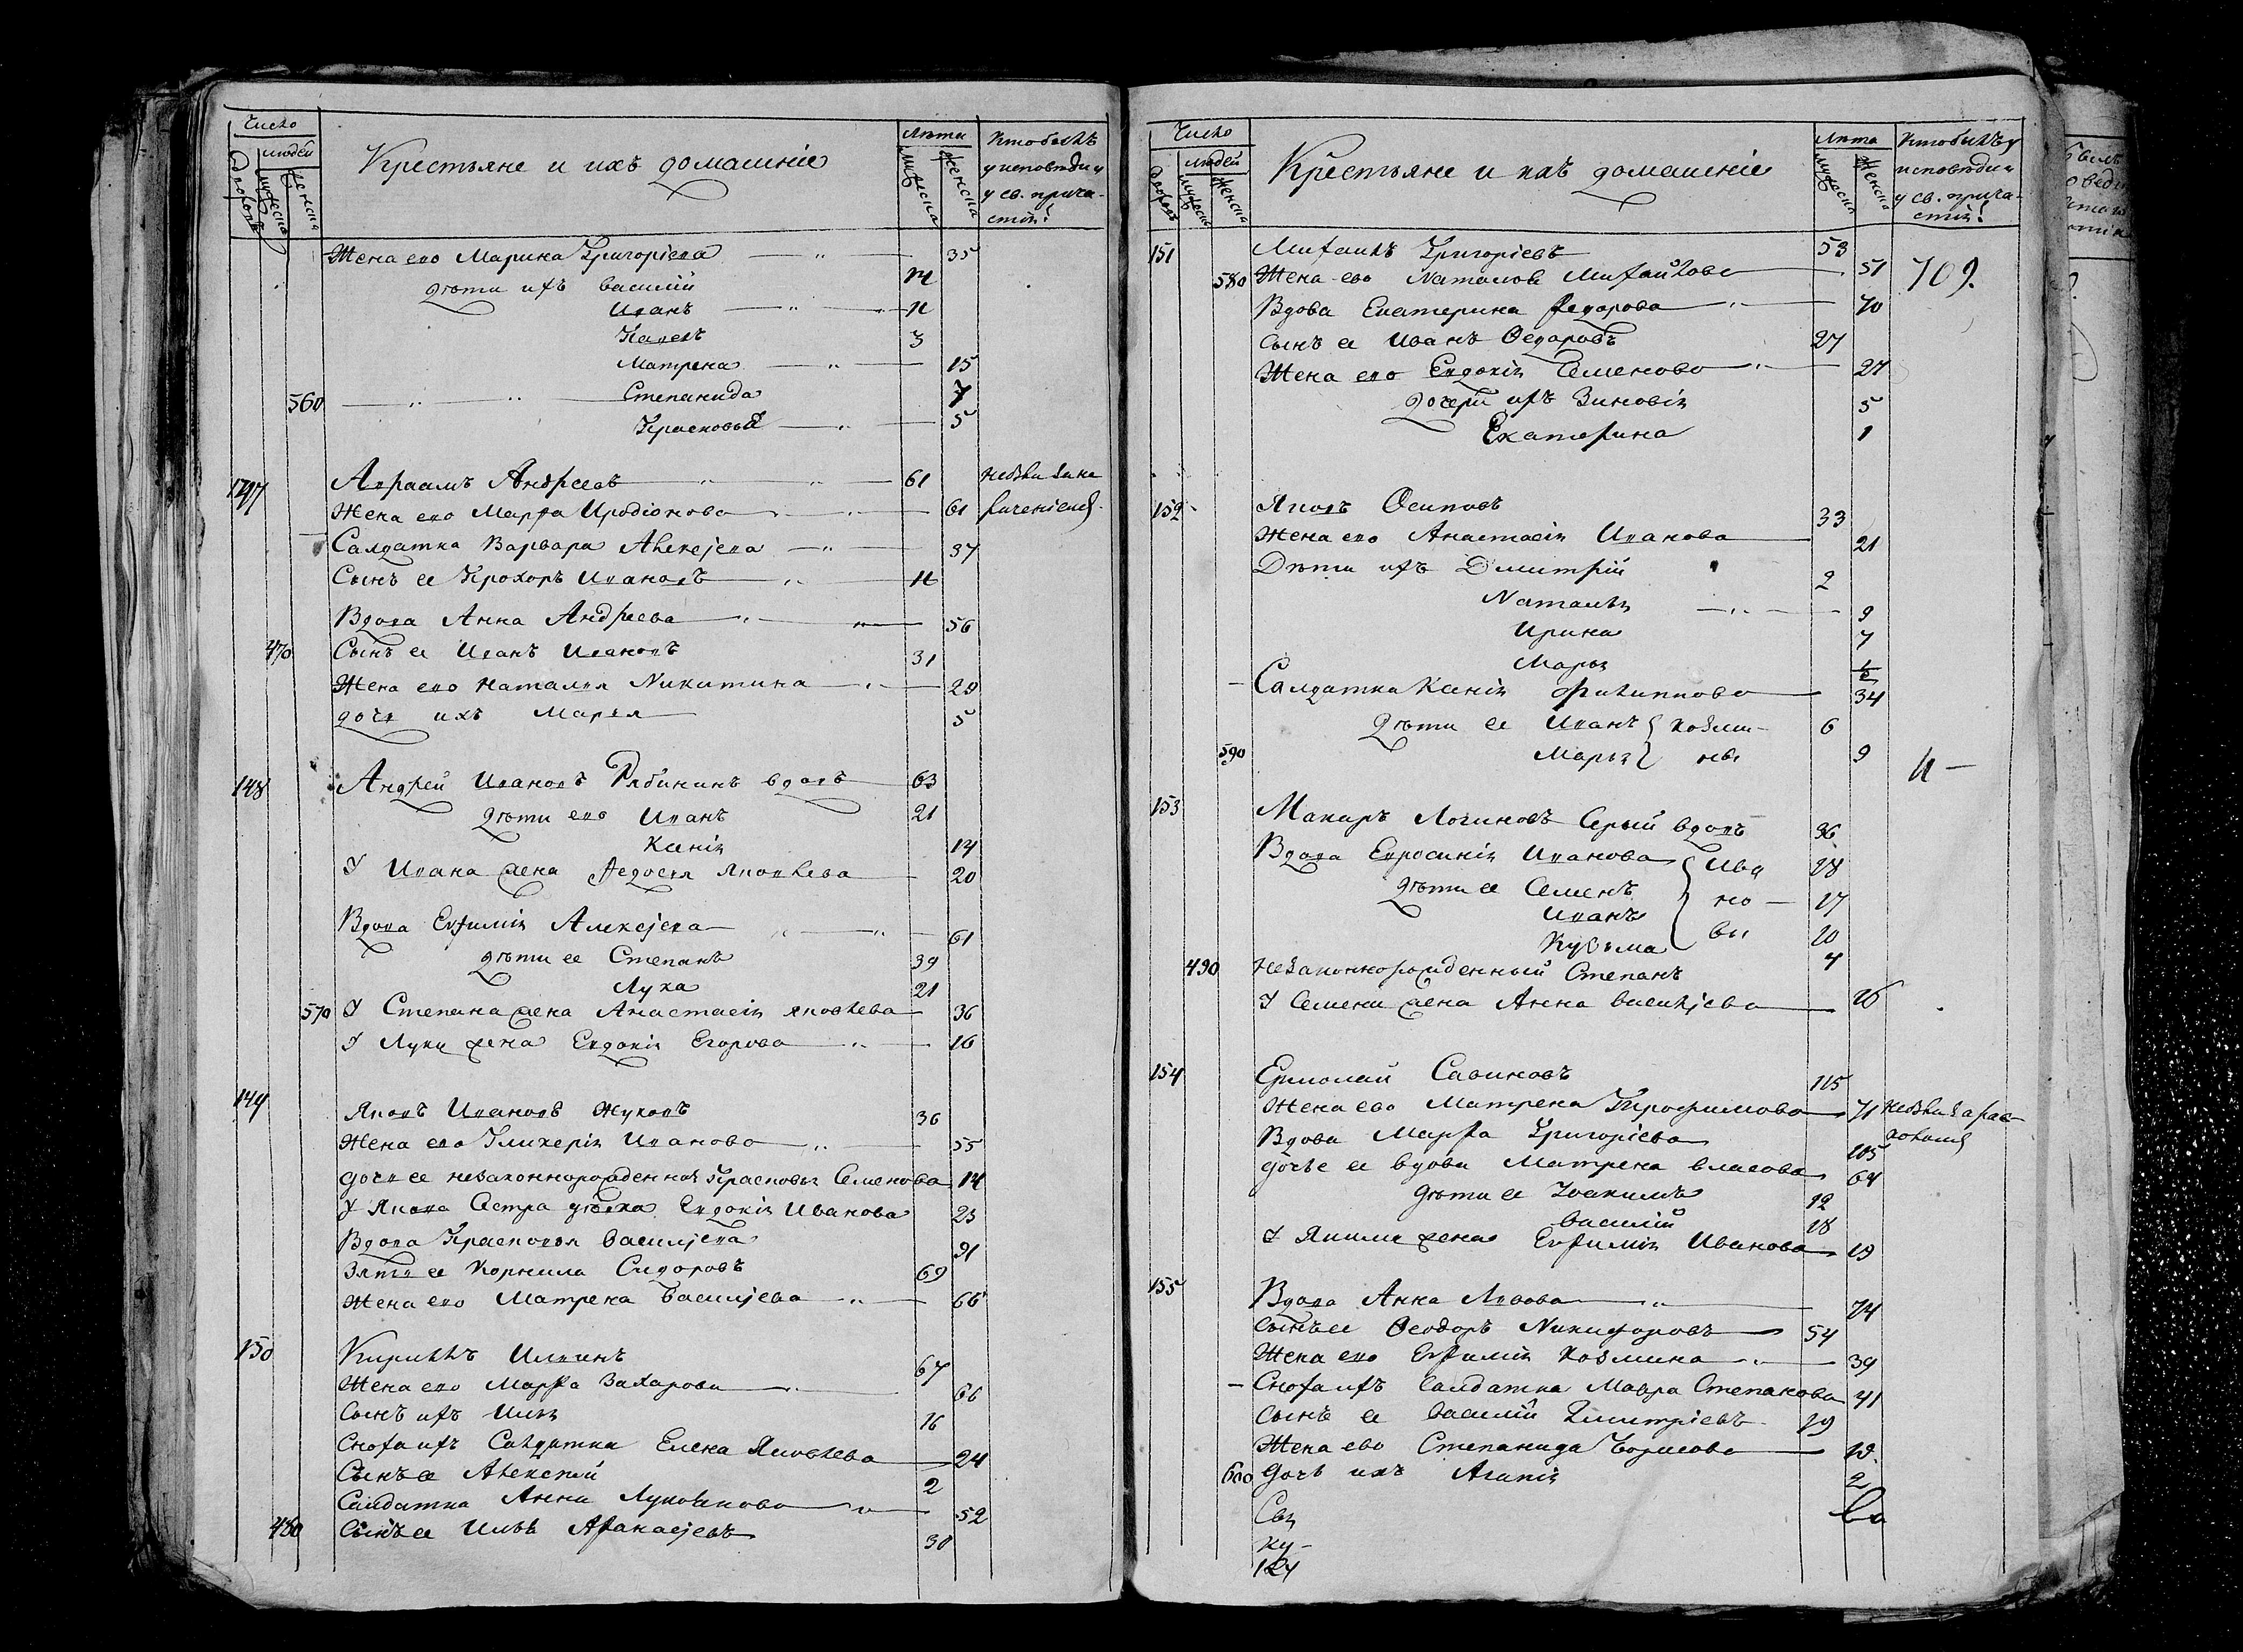 Число
людей
Дворовъ
мужеска
женска
Крестьяне и ихъ домашніе
Лѣта
мужеска
женска
Кто былъ
у исповѣди и
у св. прича-
стія?
Жена его Марина Григоріева 35
дѣти ихъ Василій 14
Иванъ 11
Павелъ 3
Матрена 15
560 Степанида 7
Прасковья 5
147 Авраамъ Андреевъ 61
Жена его Марѳа Иродіонова 61
Салдатка Варвара Алексјева 37
Сынъ ея Прохоръ Ивановъ 11
Вдова Анна Андреева 56
470 Сынъ ея Иванъ Ивановъ 31
Жена его Наталья Никитина 29
дочь ихъ Марья 5
148 Андрей Ивановъ Рябининъ вдовъ 63
дѣти его Иванъ 21
Ксенія 14
У Ивана жена Федосья Яковлева 20
Вдова Евфимія Алексјева 61
дѣти ее Степанъ 39
Лука 21
570 У Степана жена Анастасія Яковлева 36
У Луки жена Евдокія Егорова 16
149
Яковъ Ивановъ Жуковъ 36
Жена его Гликерія Иванова 55
дочь ее незаконнорожденная Прасковья Семенова 14
У Якова Сестра дѣвка Евдокія Иванова 23
Вдова Прасковья Василјева 91
Зять ее Корнила Сидоровъ 69
Жена его Матрена Василјева 66
150 Кириллъ Ильинъ 67
Жена его Марѳа Захарова 66
Сынъ ихъ Илья 16
Сноха ихъ Салдатка Елена Яковлева 24
Сынъ ея Алексѣй 2
Салдатка Анна Лукьянова 52
480 Сынъ ея Илья Афанасјевъ 30
Число
людей
Дворовъ
мужеска
женска
Крестьяне и ихъ домашніе
Лѣта
мужеска
женска
Кто былъ у
исповѣди и
у св. прича-
стія?
151 Михаилъ Григоріевъ 53
580 Жена его Наталья Михайлова 51
709.
Вдова Екатерина Федорова 70
Сынъ ея Иванъ Ѳедоровъ 27
Жена его Евдокія Семенова 27
дочери ихъ Зиновія 5
Екатерина 1
152 Яковъ Осиповъ 33
Жена его Анастасія Иванова 21
Дѣти ихъ Димитрій 2
Наталья 9
Ирина 7
Марья
Салдатка Ксенія Филиппова 34
дѣти ее Иванъ Козми- 6
590 Марья ны 9
153 Макаръ Логиновъ Серый вдовъ 36
Вдова Евросинія Иванова
дѣти ее Семенъ
Иванъ
Кузьма
Ива
но-
вы
490 Незаконнорожденный Степанъ 4
У Семена жена Анна Василјева
154 Ермолай Савиновъ
Жена его Матрена Трофимова 71
Вдова Марѳа Григоріева
дочь ее вдова Матрена Власова 64
дѣти ее Іоакимъ
Василій 18
У Якима жена Евфимія Иванова 19
155 Вдова Анна Львова 74
Сынъ ее Ѳеодоръ Никифоровъ 54
Жена его Евфимія Козмина 39
Сноха ихъ Салдатка Мавра Степанова 41
Сынъ ея Василій Димитріевъ 19
Жена его Степанида Борисова
600 Дочь ихъ Агапія 2